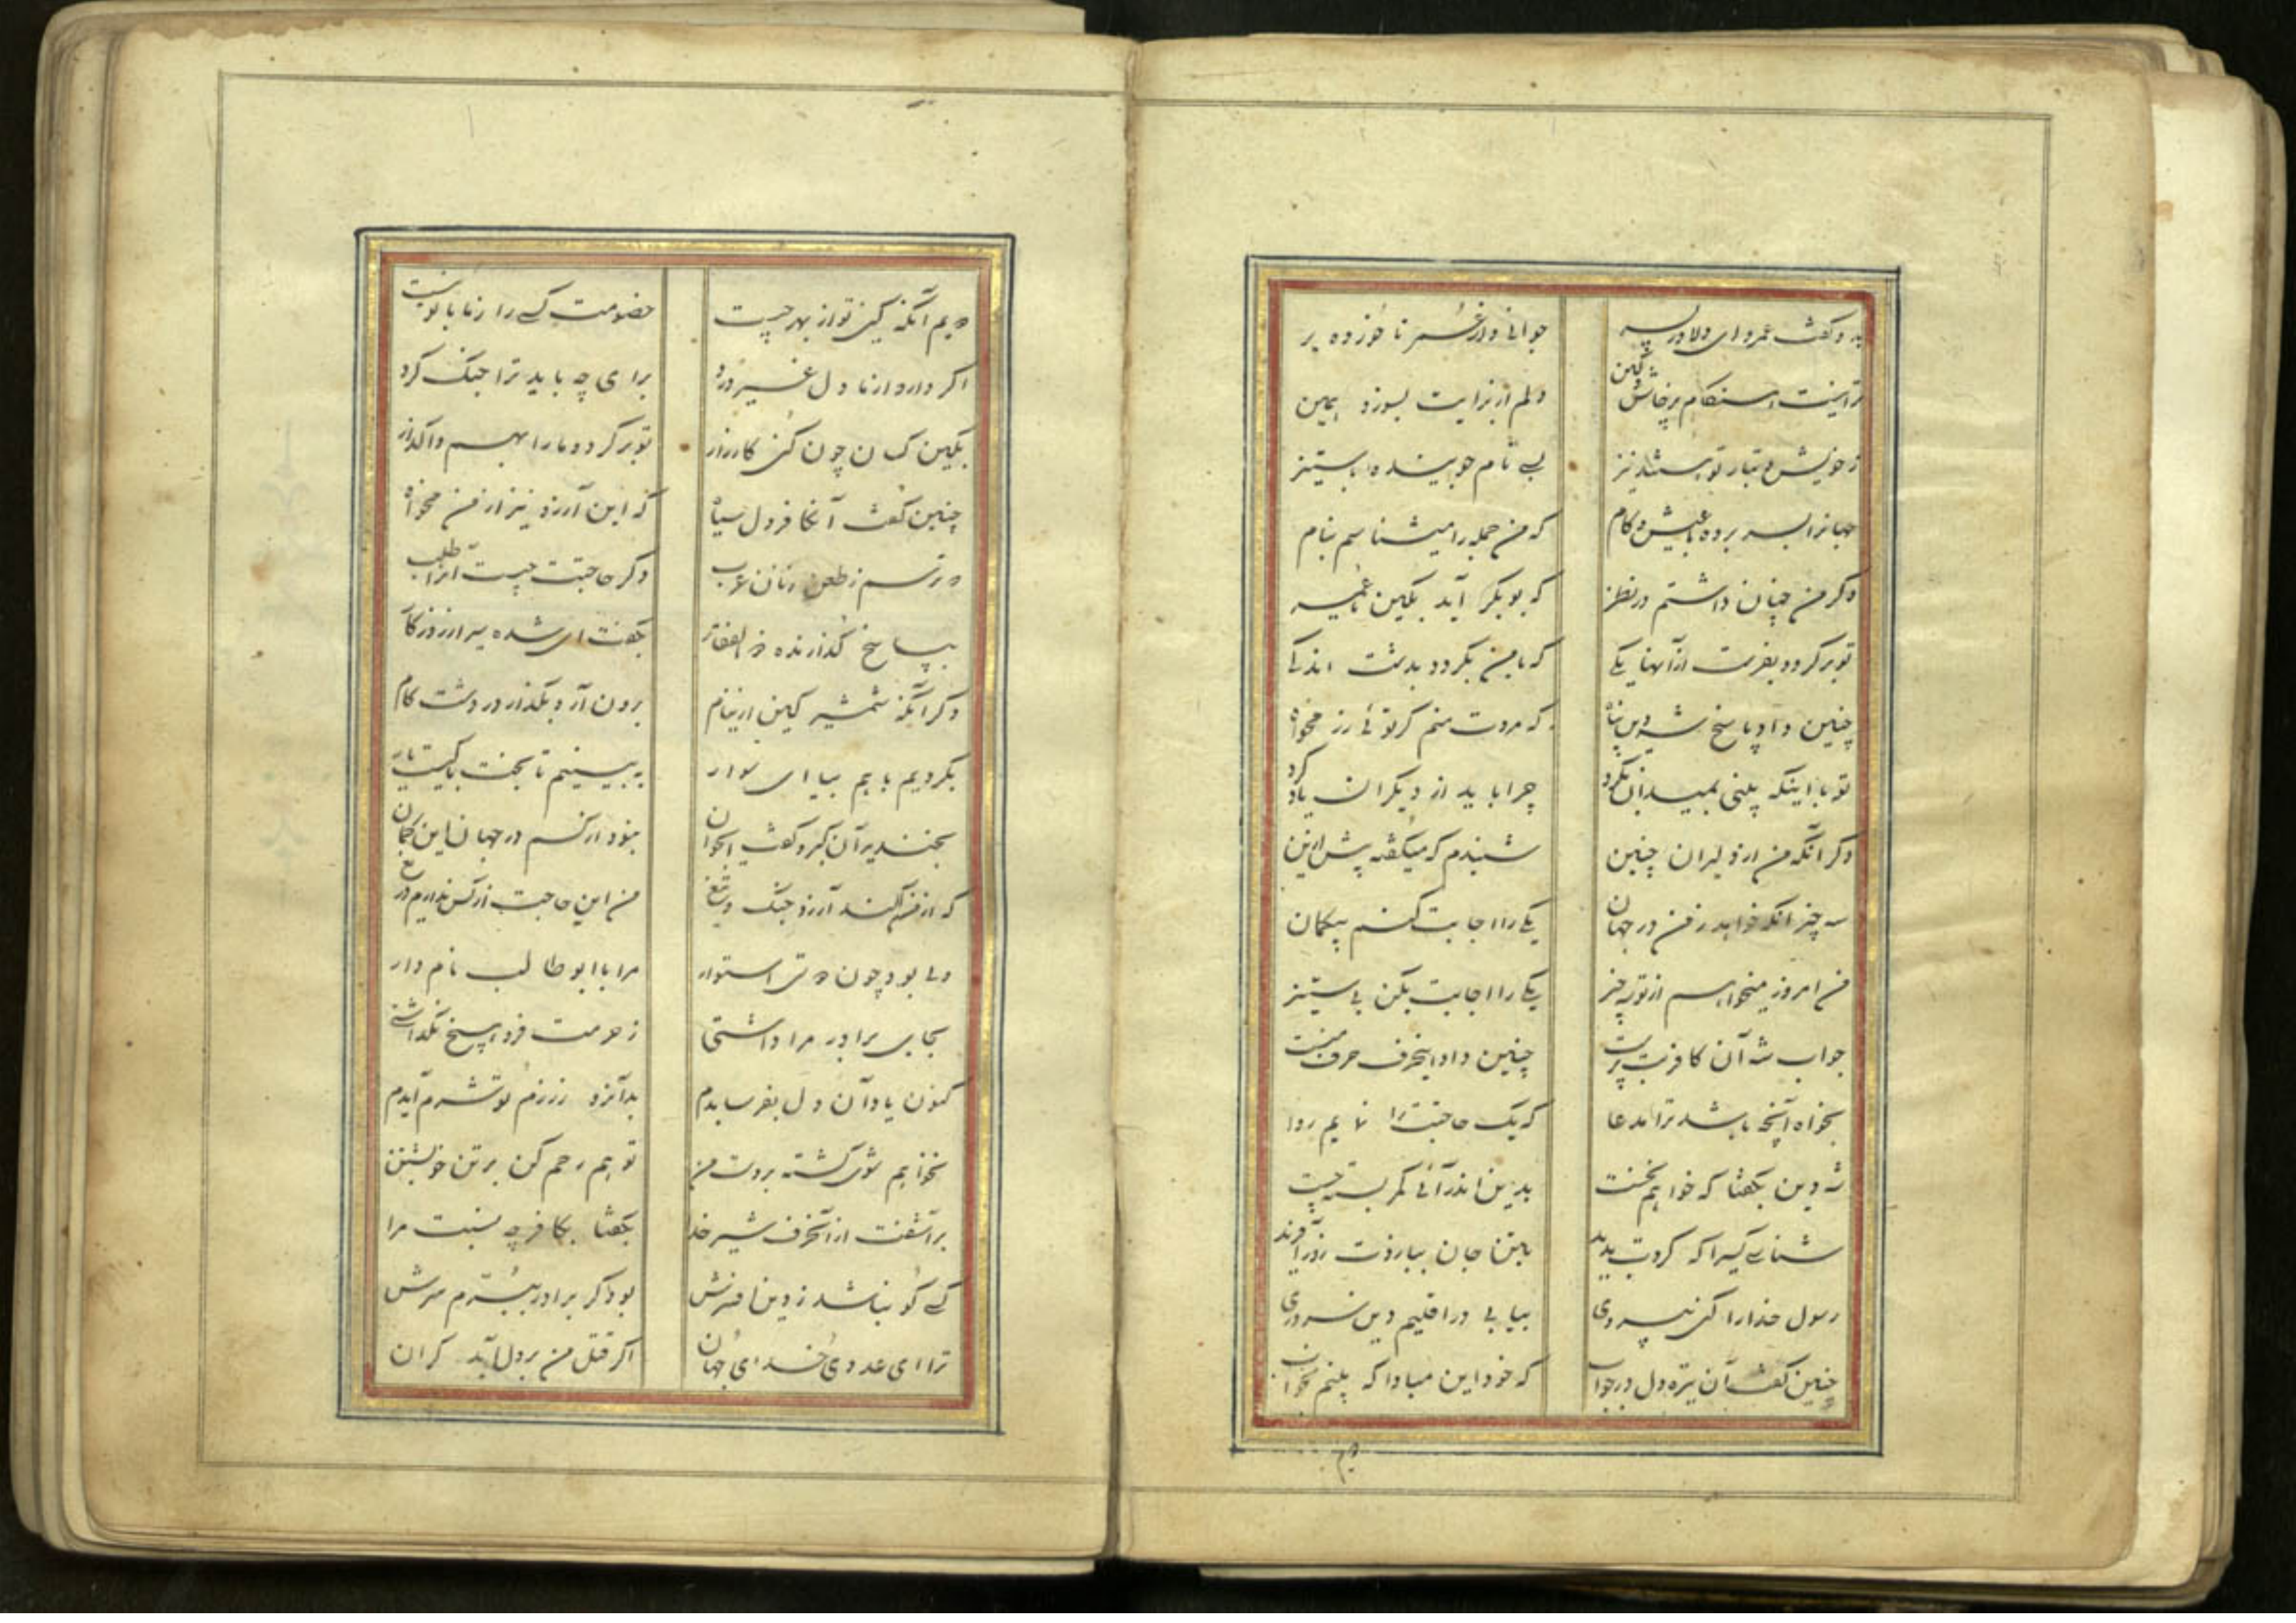 بدو گفت عمرو ای دلاور پسر جوانی و از عمر ناخورده بر
ترا نیست هنگام پرخاش و کین دلم از برایت بسوزد همین
ز خویش و تبار تو هستند نیز بسی نام جوینده با ستیز
جهانرا بسر برده با عیش و کام که من جمله را میشناسم بنام
دگر من چنان داشتم در نظر که بوبکر آید بکین یا عمر
تو برگرد و بفرست از آنها یکی که با من بگردد بدشت اندکی
چنین داد پاسخ شه دین پناه که مردت منم گر توئی رزمخواه
تو با اینکه پلنی بمیدان نگرد چرا باید از دیگران یاد کرد
دگر آنکه من از دلیران چنین شنیدم که میگفتهٔ پیش ازین
سه چیز آنکه خواهد ز من در جهان یکی را اجابت کنم بیگمان
من امروز میخواهم از تو سه چیز یکی را اجابت بکن بی ستیز
جواب شه آن کافر بت پرست چنین داد اینحرف حرف منست
بخواه آنچه باشد ترا مدعا که یک حاجتت را نمایم روا
شه دین بگفتا که خواهم نخست بدین اندر آئی کمر بسته چست
شناسی کسیرا که کردت پدید بتن جان ببازوت زور آفرید
رسول خدا را کنی پیروی بیابی در اقلیم دین سروری
چنین گفت آن تیره دل در جواب که خود این مبادا که بینم بخواب
دویم
دویم آنکه کین تو از بهر چیست خصومت کسی را ز ما با تو نیست
اگر دارد از ما دل غیر درد برای چه باید ترا جنگ کرد
بکین کسان چون کنی کارزار تو برگرد و ما را بهم واگذار
چنین گفت آنکافر دل سیاه که این آرزو نیز از من مخواه
که ترسم ز طعن زنان عرب دگر حاجتت چیست آنرا طلب
بپاسخ گذارنده ذوالفقار بگفت ای شده سیر از روزگار
دگر آنکه شمشیر کین از نیام برون آر و بگذار در دشت کام
بگردیم با هم بیا ای سوار ببینیم تا بخت با کیست یار
بخندید آن گبر و گفت ایجوان نبود از کسم در جهان این گمان
که از من کند آرزو جنگ و تیغ من این حاجت از کس ندارم دریغ
ولی بود چون دوستی استوار مرا با ابو طالب نامدار
بجای برادر مرا داشتی ز حرمت فرو هیچ نگذاشتی
کنون یاد آن دل بفرسایدم بدانرو ز رزم تو شرم آیدم
نخواهم شوی کشته بر دست من تو هم رحم کن بر تن خویشتن
برآشفت از آنحرف شیر خدا بگفتا بکافر چه نسبت مرا
کسی کو نباشد ز دین افسرش بود گر برادر ببرم سرش
ترا ای عدوی خدای جهان اگر قتل من بر دل آید گران